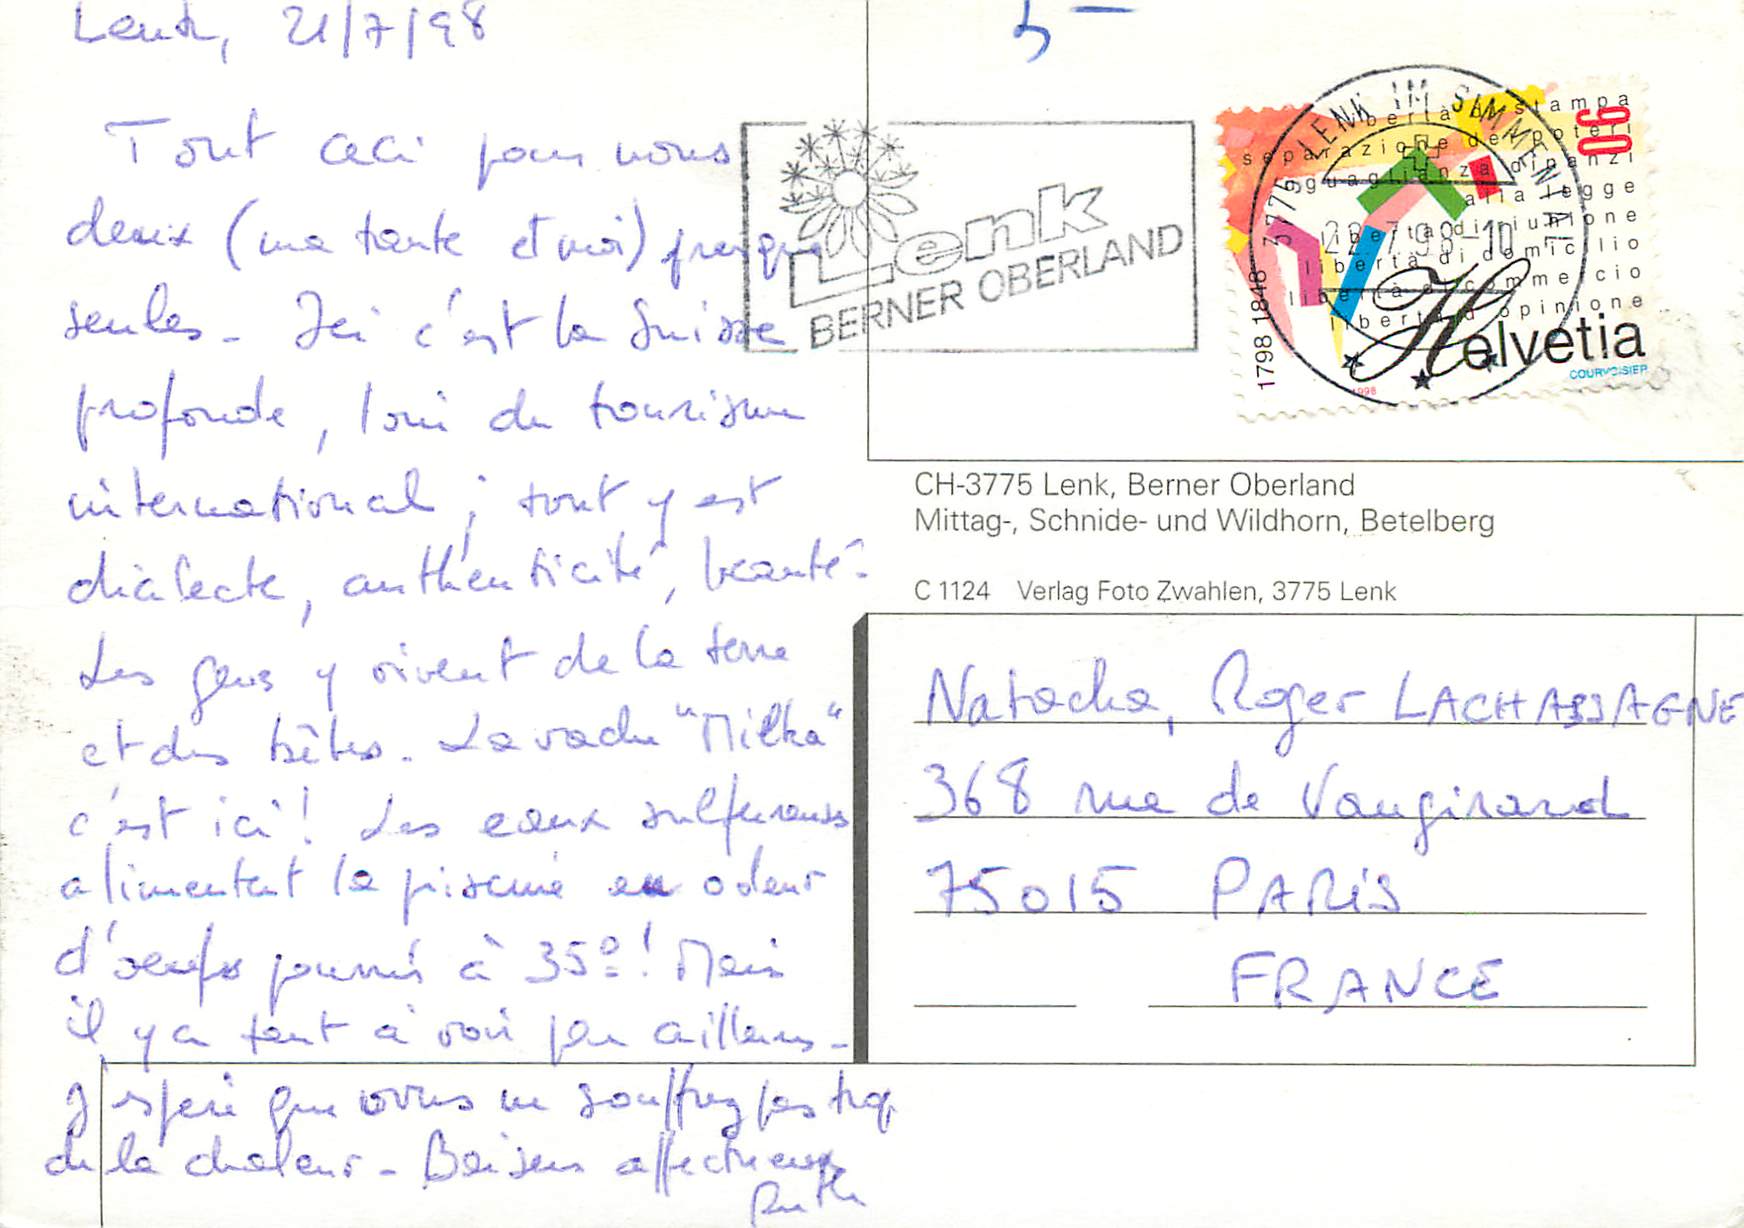 Lenk, 21/7/98
Tout ceci pour nous
deux (ma tante et moi) presque
seules - Ici c'est la Suisse
profonde, loin du tourisme
international ; tout y est
dialecte, authenticité, beauté -
Les gens y vivent de la terre
et des bêtes. La vache "Milka"
c'est ici ! Les eaux sulfureuses
alimentent la piscine en odeur
d'oeufs pourris à 35° ! Mais
il y a tant à voir par ailleurs -
J'espère que vous ne souffrez pas trop
de la chaleur - Baisers affectueux
Ruth
5 -
Lenk
BERNER OBERLAND
3775 LENK IM SIMMENTAL
22.7.98-10
libertà di stampa
separazione dei poteri
uguaglianza dinanzi
alla legge
libertà di riunione
libertà di domicilio
libertà di commercio
libertà d'opinione
90
1798 1848
Helvetia
COURVOISIER
1998
CH-3775 Lenk, Berner Oberland
Mittag-, Schnide- und Wildhorn, Betelberg
C 1124 Verlag Foto Zwahlen, 3775 Lenk
Natacha, Roger LACHASSAGNE
368 rue de Vaugirard
75015 PARIS
FRANCE